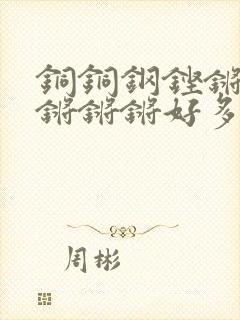 銅銅鋼鏗鏘
鏘鏘鏘好多
周彬